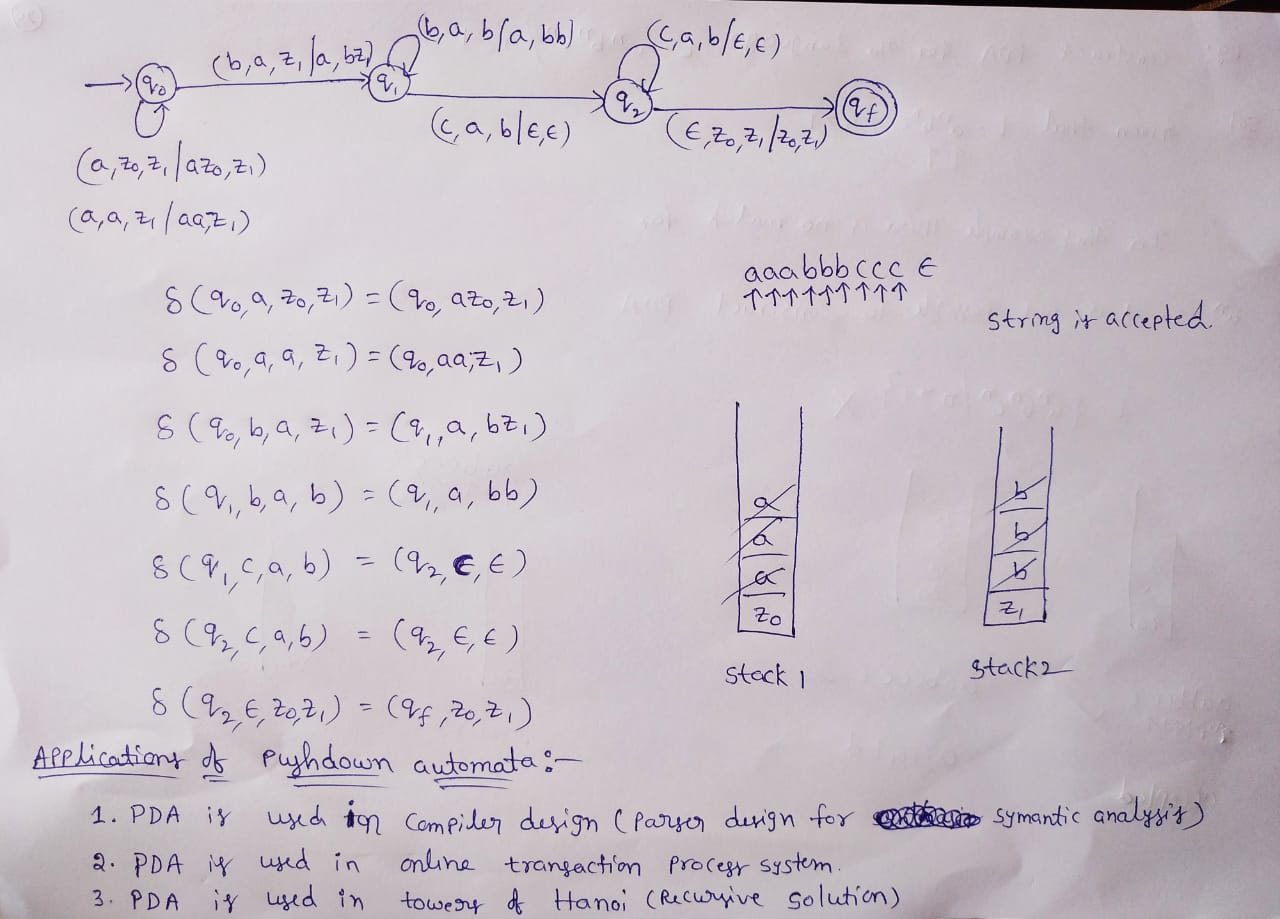 (b,a,b/a,bb)
(c,a,b/ϵ,ϵ)
(b,a,z₁/a,bz)
q₀
q₁
q₂
qf
(c,a,b/ϵ,ϵ)
(ϵ,z₀,z₁/z₀,z₁)
(a,z₀,z₁/az₀,z₁)
(a,a,z₁/aa,z₁)
aaabbbccc ϵ
↑↑↑↑↑↑↑↑↑
string is accepted.
δ(q₀,a,z₀,z₁) = (q₀, az₀,z₁)
δ(q₀,a,a,z₁) = (q₀,aa,z₁)
δ(q₀,b,a,z₁) = (q₁,a,bz₁)
δ(q₁,b,a,b) = (q₁,a,bb)
δ(q₁,c,a,b) = (q₂,ϵ,ϵ)
δ(q₂,c,a,b) = (q₂,ϵ,ϵ)
δ(q₂,ϵ,z₀,z₁) = (qf,z₀,z₁)
a
a
a
z₀
Stack 1
b
b
b
z₁
Stack 2
Applications of Pushdown automata:-
1. PDA is used in compiler design (Parser design for symantic analysis)
2. PDA is used in online transaction process system.
3. PDA is used in towers of Hanoi (Recursive solution)